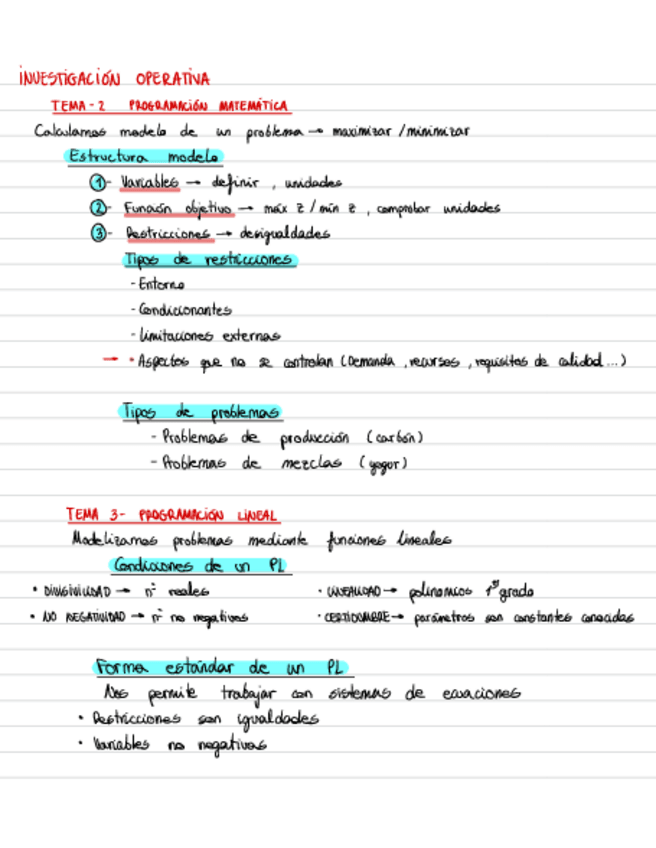 INVESTIGACIÓN OPERATIVA
TEMA - 2 PROGRAMACIÓN MATEMÁTICA
Calculamos modelo de un problema → maximizar / minimizar
Estructura modelo
1- Variables → definir, unidades
2- Función objetivo → máx z / mín z, comprobar unidades
3- Restricciones → desigualdades
Tipos de restricciones
- Entorno
- Condicionantes
- Limitaciones externas
→ · Aspectos que no se controlan (Demanda, recursos, requisitos de calidad...)
Tipos de problemas
- Problemas de producción (carbón)
- Problemas de mezclas (yogur)
TEMA 3- PROGRAMACIÓN LINEAL
Modelizamos problemas mediante funciones lineales
Condiciones de un PL
· DIVISIVILIDAD → nº reales · LINEALIDAD → polinomios 1er grado
· NO NEGATIVIDAD → nº no negativos · CERTIDUMBRE → parámetros son constantes conocidas
Forma estándar de un PL
Nos permite trabajar con sistemas de ecuaciones
· Restricciones son igualdades
· Variables no negativas